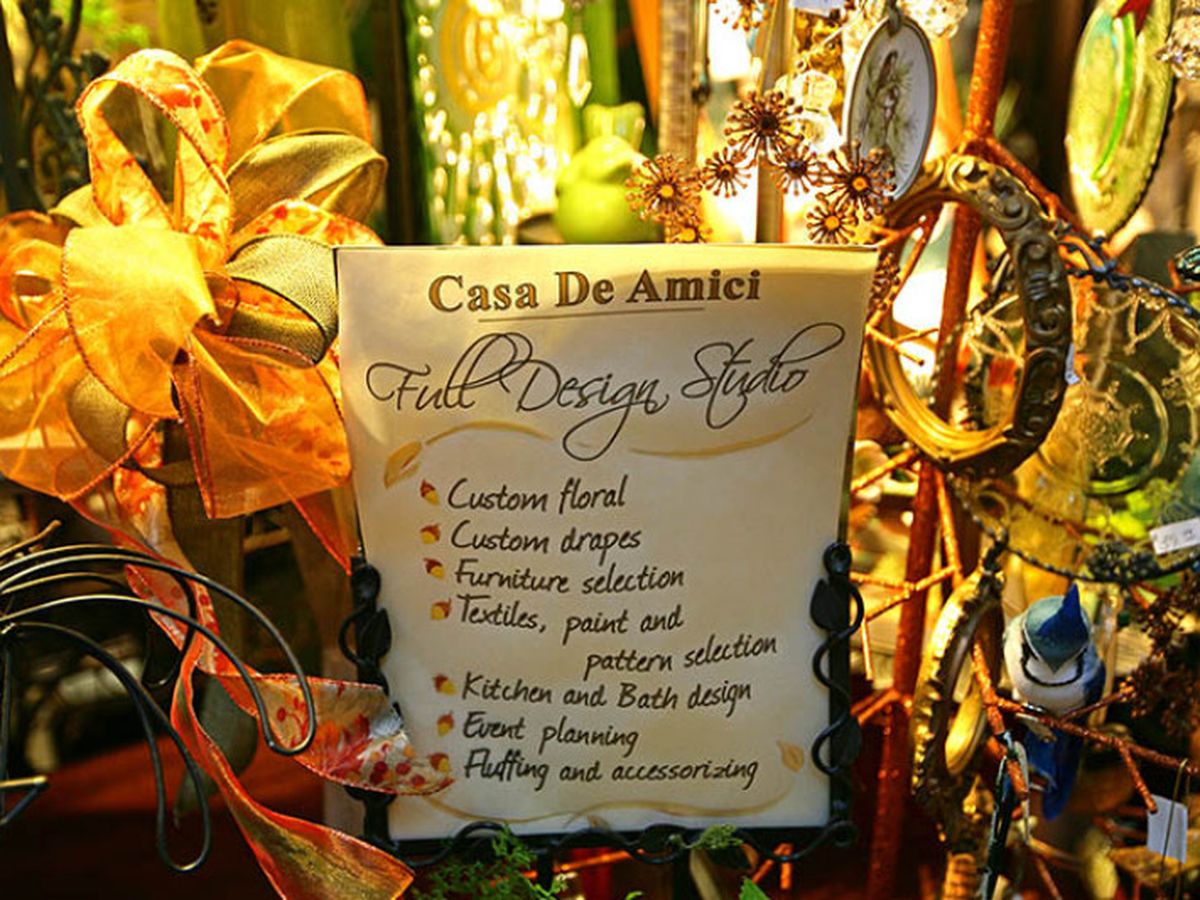 Casa De Amici
Full Design Studio
Custom floral
Custom drapes
Furniture selection
Textiles, paint and
pattern selection
Kitchen and Bath design
Event planning
Fluffing and accessorizing